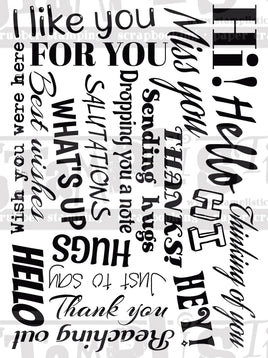 I like you
FOR YOU
Wish you were here
Best wishes
WHAT'S UP
SALUTATIONS
Dropping you a note
Sending hugs
THANKS!
Miss you
Hi!
Hello
HI
Thinking of you
HEY!
HUGS
Just to say
HELLO
Thank you
Reaching out